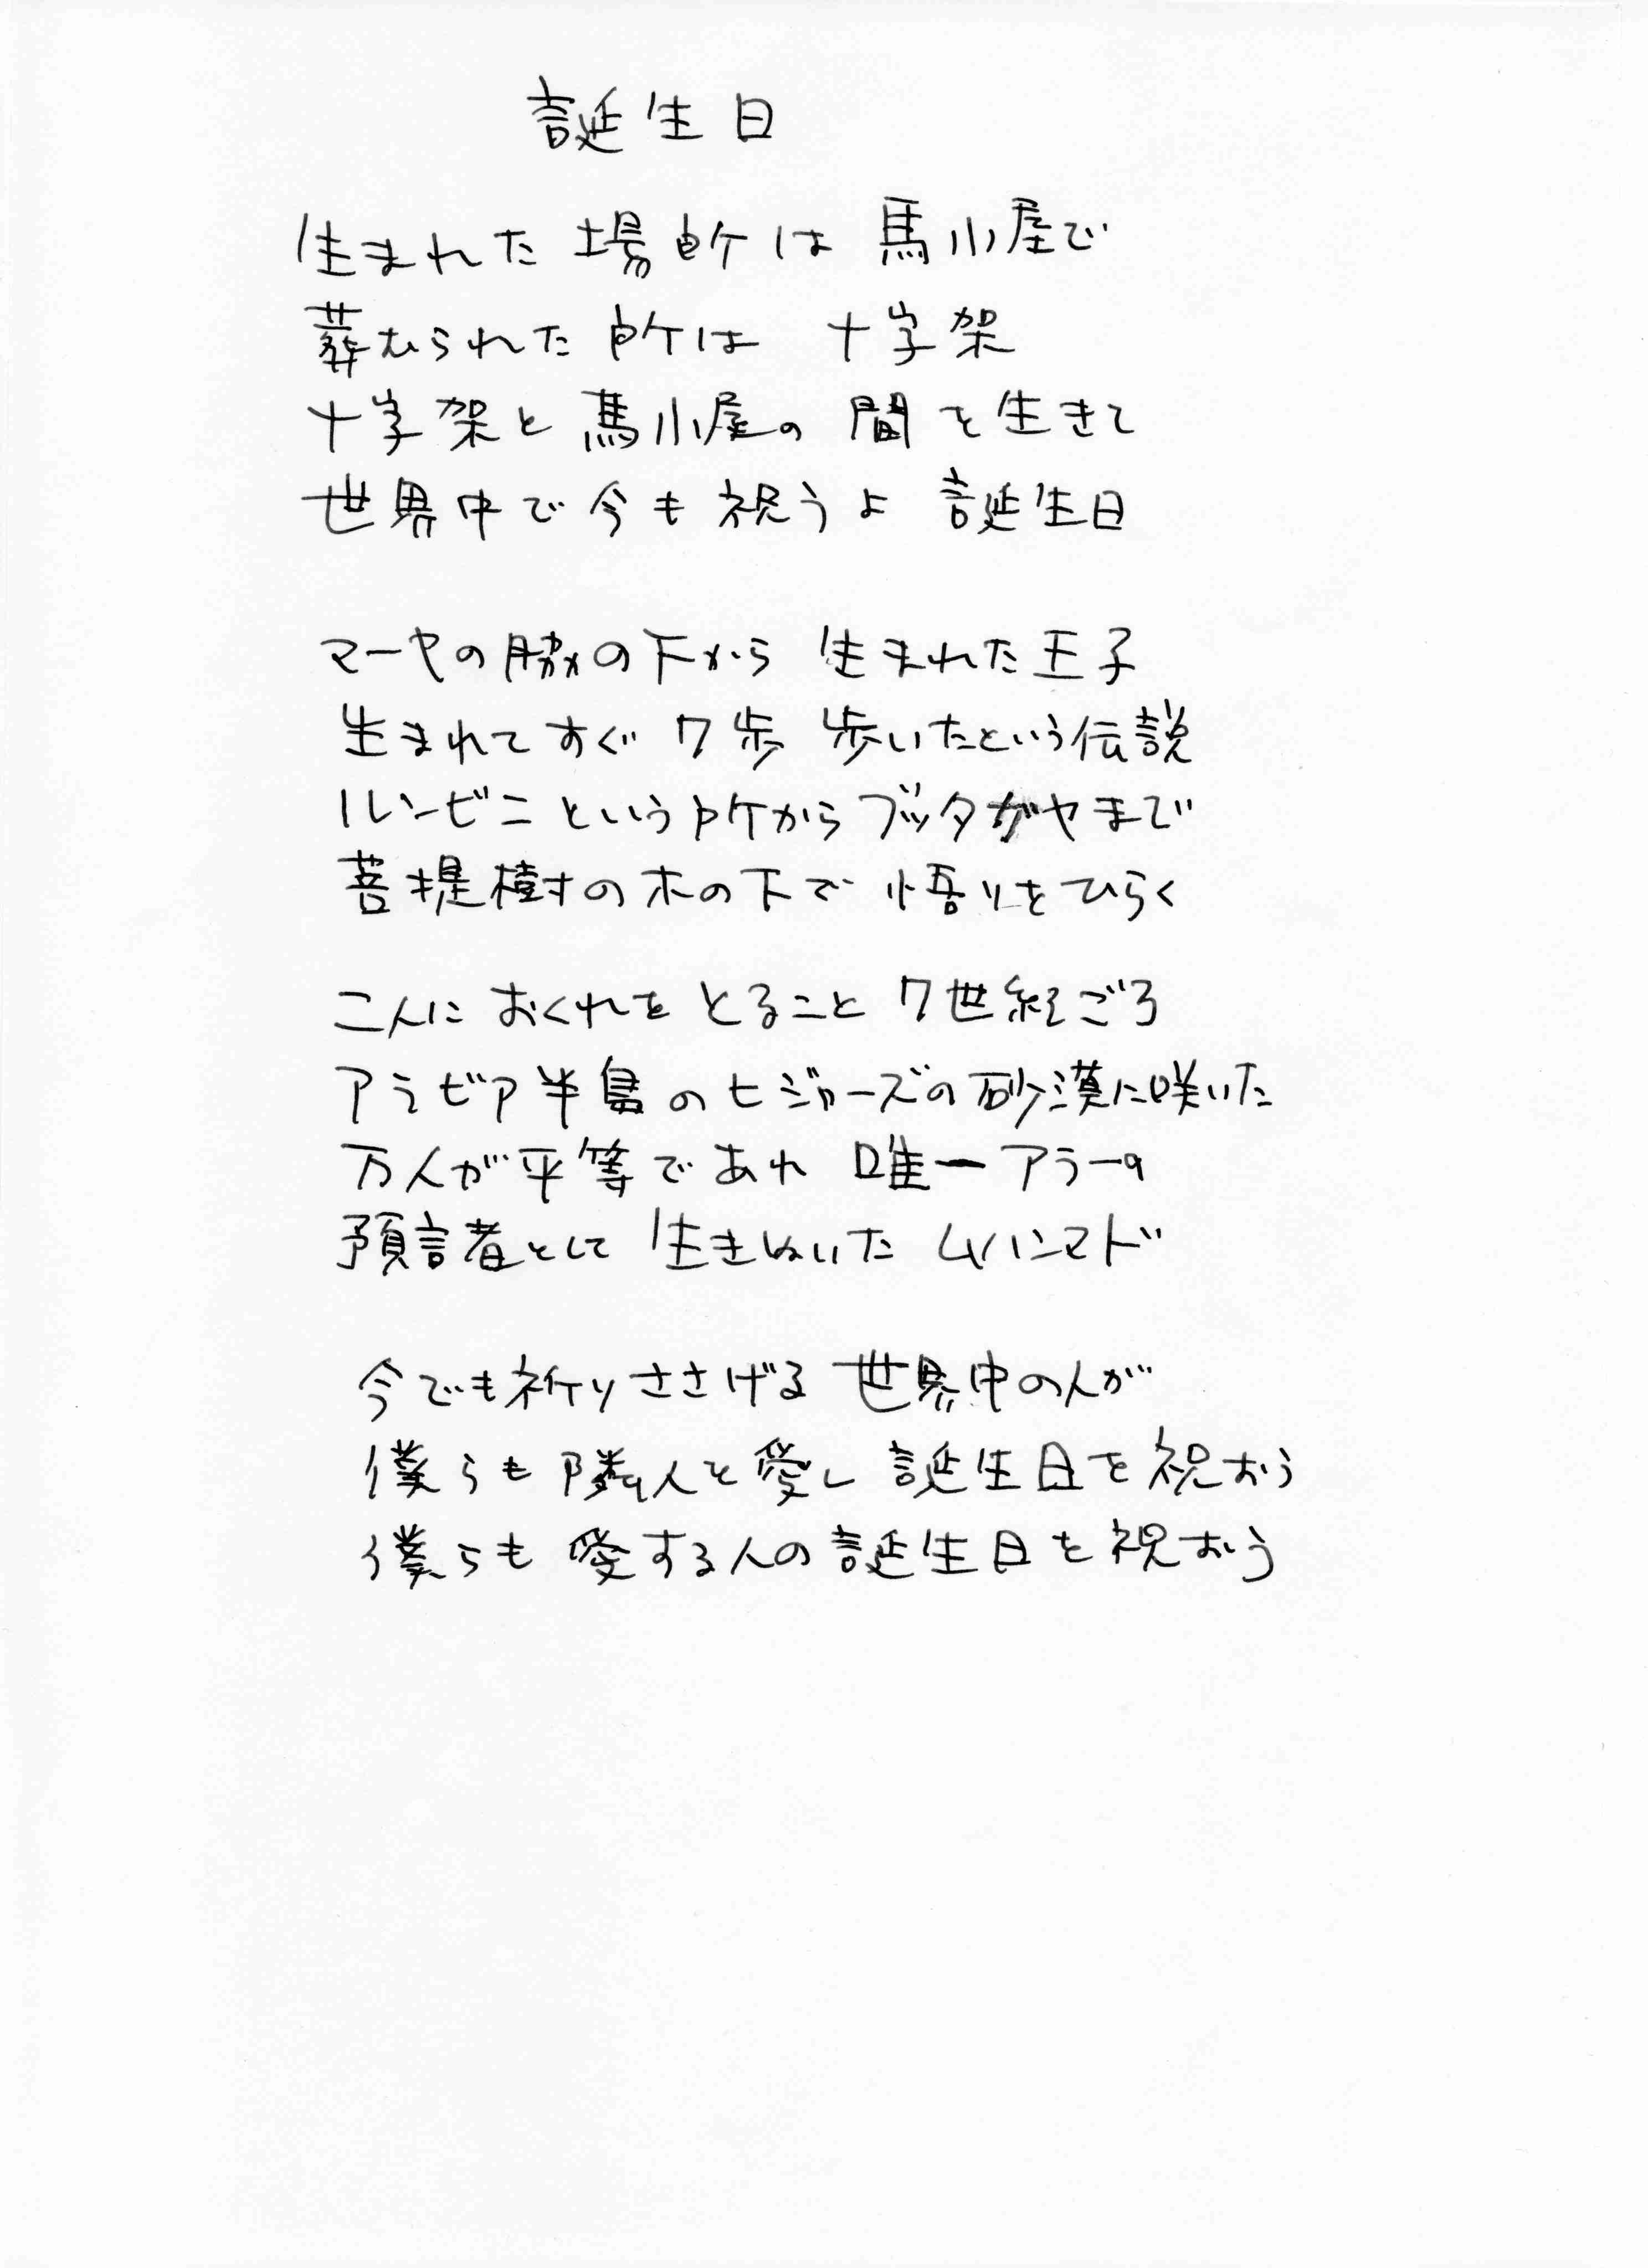 誕生日
生まれた場所は 馬小屋で
葬むられた所は 十字架
十字架と馬小屋の 間を生きて
世界中で今も祝うよ 誕生日
マーヤの脇の下から 生まれた王子
生まれてすぐ 7歩 歩いたという伝説
ルンビニという所からブッタガヤまで
菩提樹の木の下で 悟りをひらく
二人に おくれを とること 7世紀ごろ
アラビア半島のヒジャーズの砂漠に咲いた
万人が平等であれ 唯一アラーの
預言者として 生きぬいた ムハンマド
今でも祈りささげる 世界中の人が
僕らも 隣人を愛し 誕生日を祝おう
僕らも 愛する人の誕生日を祝おう